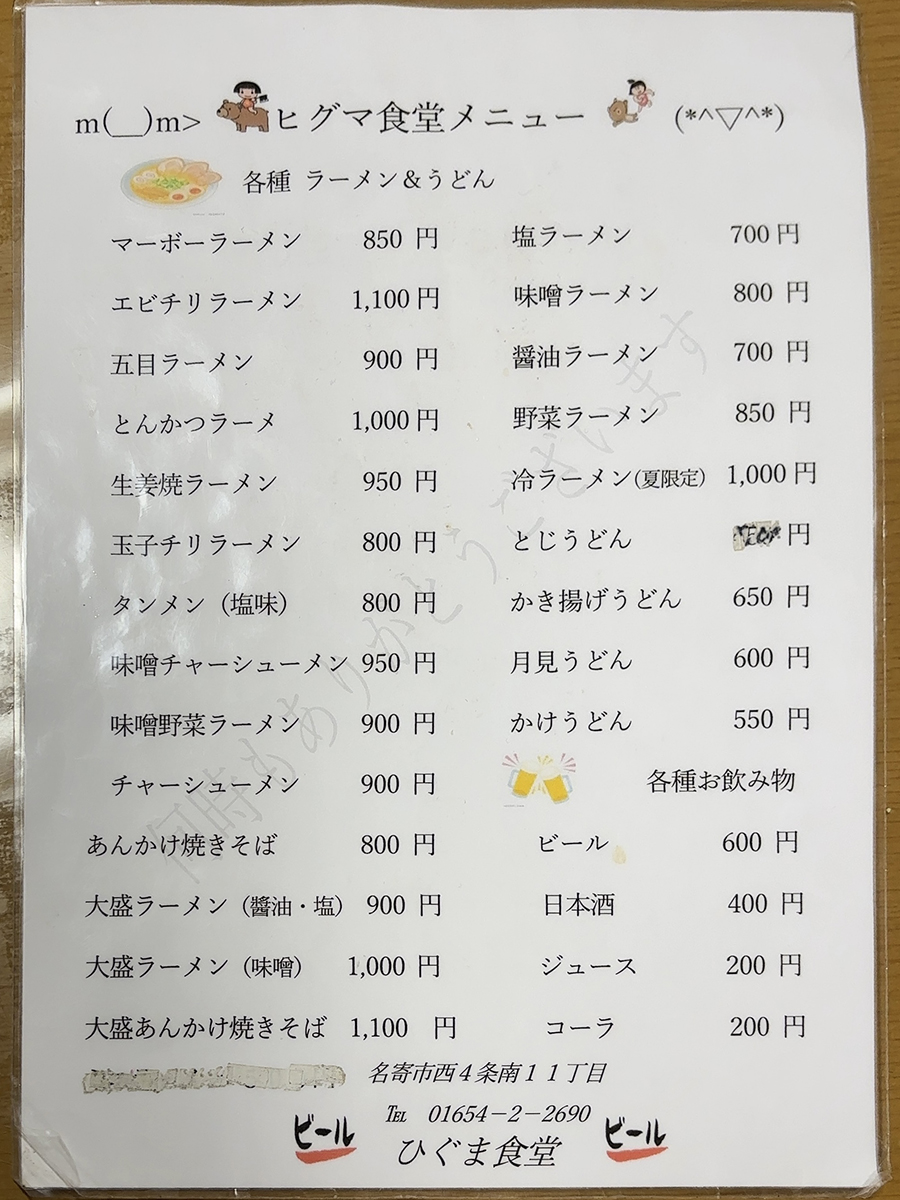 m(__)m> ヒグマ食堂メニュー (*^▽^*)
各種 ラーメン＆うどん
マーボーラーメン 850 円
エビチリラーメン 1,100 円
五目ラーメン 900 円
とんかつラーメ 1,000 円
生姜焼ラーメン 950 円
玉子チリラーメン 800 円
タンメン（塩味） 800 円
味噌チャーシューメン 950 円
味噌野菜ラーメン 900 円
チャーシューメン 900 円
あんかけ焼きそば 800 円
大盛ラーメン（醬油・塩） 900 円
大盛ラーメン（味噌） 1,000 円
大盛あんかけ焼きそば 1,100 円
塩ラーメン 700 円
味噌ラーメン 800 円
醤油ラーメン 700 円
野菜ラーメン 850 円
冷ラーメン(夏限定) 1,000 円
とじうどん 円
かき揚げうどん 650 円
月見うどん 600 円
かけうどん 550 円
各種お飲み物
ビール 600 円
日本酒 400 円
ジュース 200 円
コーラ 200 円
何時もありがとうございます
名寄市西４条南１１丁目
℡ 01654－2－2690
ビール ひぐま食堂 ビール